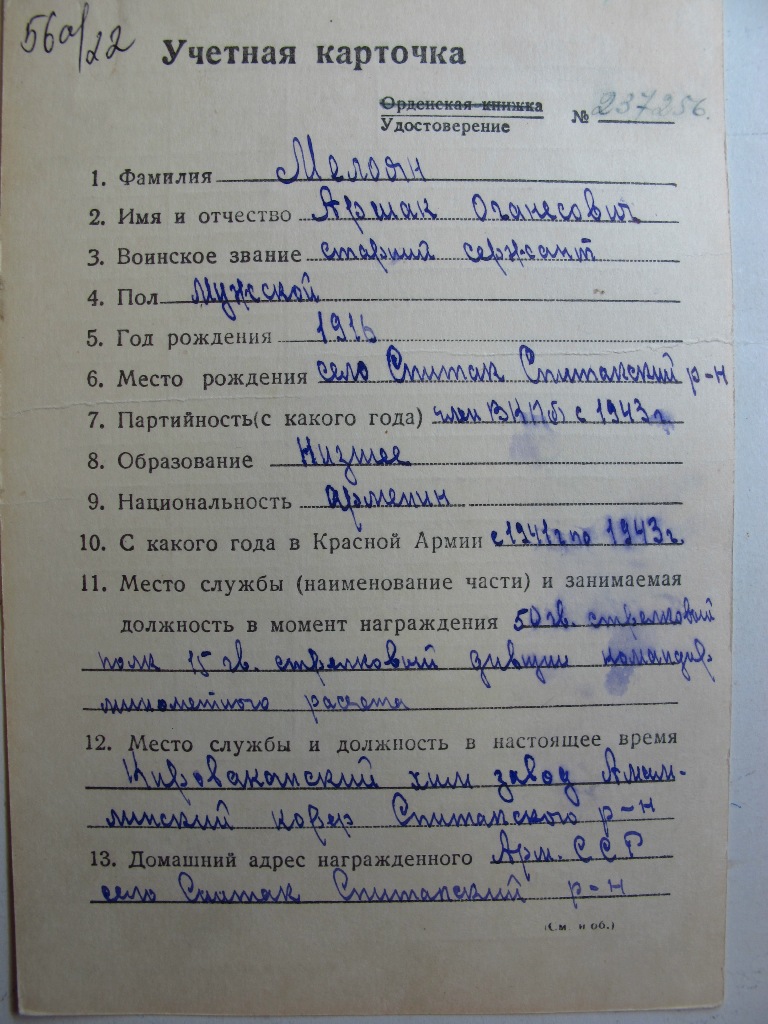 560/22
Учетная карточка
Орденская книжка
Удостоверение № 237256.
1. Фамилия Мелоян
2. Имя и отчество Аршак Оганесович
3. Воинское звание старший сержант
4. Пол Мужской
5. Год рождения 1916
6. Место рождения село Спитак Спитакский р-н
7. Партийность (с какого года) член ВКПб с 1943 г.
8. Образование Низшее
9. Национальность армянин
10. С какого года в Красной Армии с 1941 г по 1943 г.
11. Место службы (наименование части) и занимаемая
должность в момент награждения 50 гв. стрелковый
полк 15 гв. стрелковый дивизии командир
минометного расчета
12. Место службы и должность в настоящее время
Кироваканский хим завод
Спитакского р-н
13. Домашний адрес награжденного Арм. ССР
село Спитак Спитакский р-н
(См. н об.)